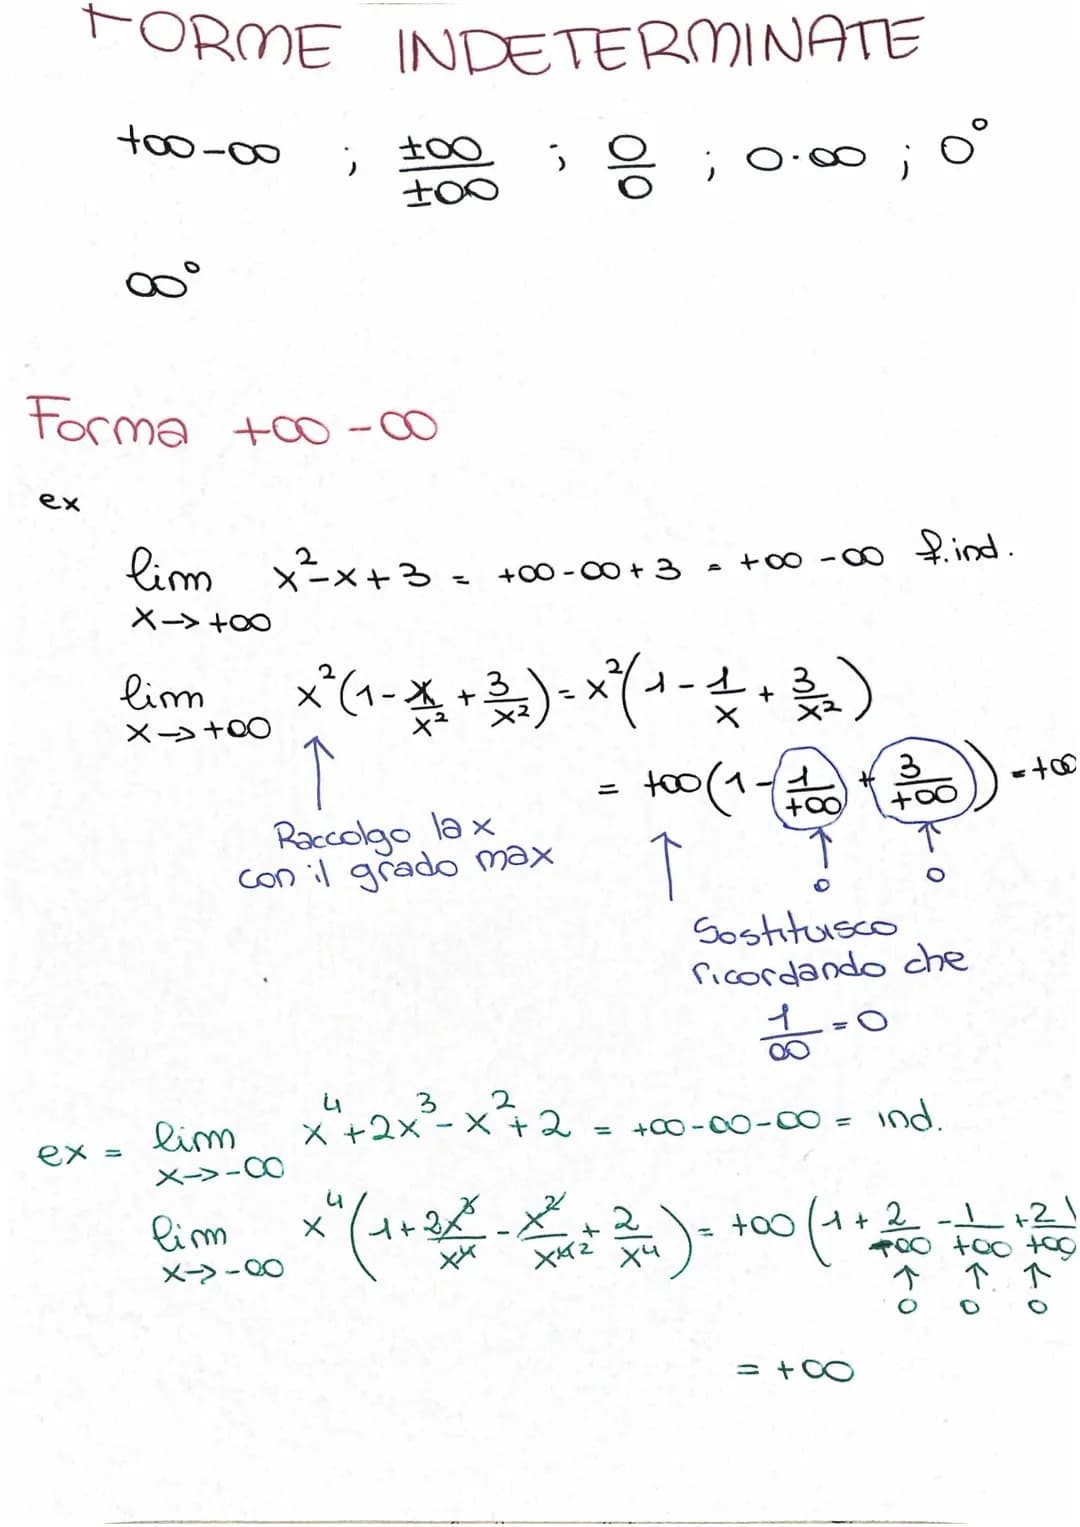 FORME INDETERMINATE
+∞-∞ ; ±∞/±∞ ; 0/0 ; 0·∞ ; 0⁰
∞⁰
Forma +∞-∞
ex
lim x²-x+3 = +∞-∞+3 = +∞-∞ f.ind.
x→+∞
lim x²(1-x/x²+3/x²) = x²(1-1/x+3/x²)
x→+∞
= +∞(1-1/+∞+3/+∞)) = +∞
0 0
Raccolgo la x
con il grado max
Sostituisco
ricordando che
1/∞ = 0
ex = lim x⁴+2x³-x²+2 = +∞-∞-∞ = ind.
x→-∞
lim x⁴(1+2x³/x⁴-x²/x⁴²+2/x⁴) = +∞(1+2/+∞-1/+∞+2/+∞)
x→-∞
0 0 0
= +∞